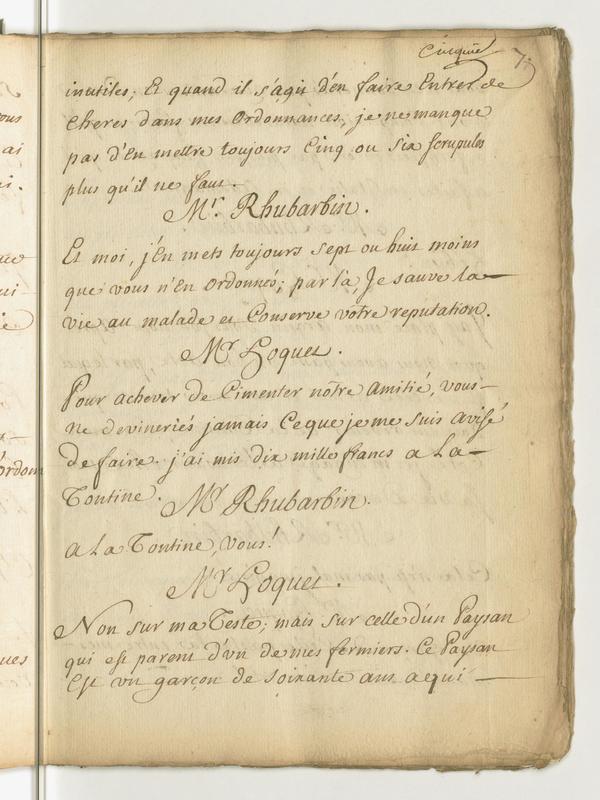 Cinquie 7.
inutiles; Et quand il s'agit d'en faire Entrer de
Cheres dans mes Ordonnances, je ne manque
pas d'En mettre toujours Cinq ou Six scrupules
plus qu'il ne faut.
Mr. Rhubarbin.
Et moi, j'En mets toujours sept ou huit moins
que vous n'En Ordonnés; par là, Je sauve la
vie au malade et Conserve votre reputation.
Mr Loquet.
Pour achever de Cimenter notre Amitié, vous
ne devineriés jamais Ce que je me suis avisé
de faire. j'ai mis dix mille francs a La
Tontine.
Mr Rhubarbin.
a La Tontine, vous!
Mr Loquet.
Non sur ma Teste; mais sur celle d'un Paysan
qui est parent d'un de mes fermiers. Ce Paysan
Est un garçon de soixante ans a qui
ous
ai
ui
ie
ordonn
ques